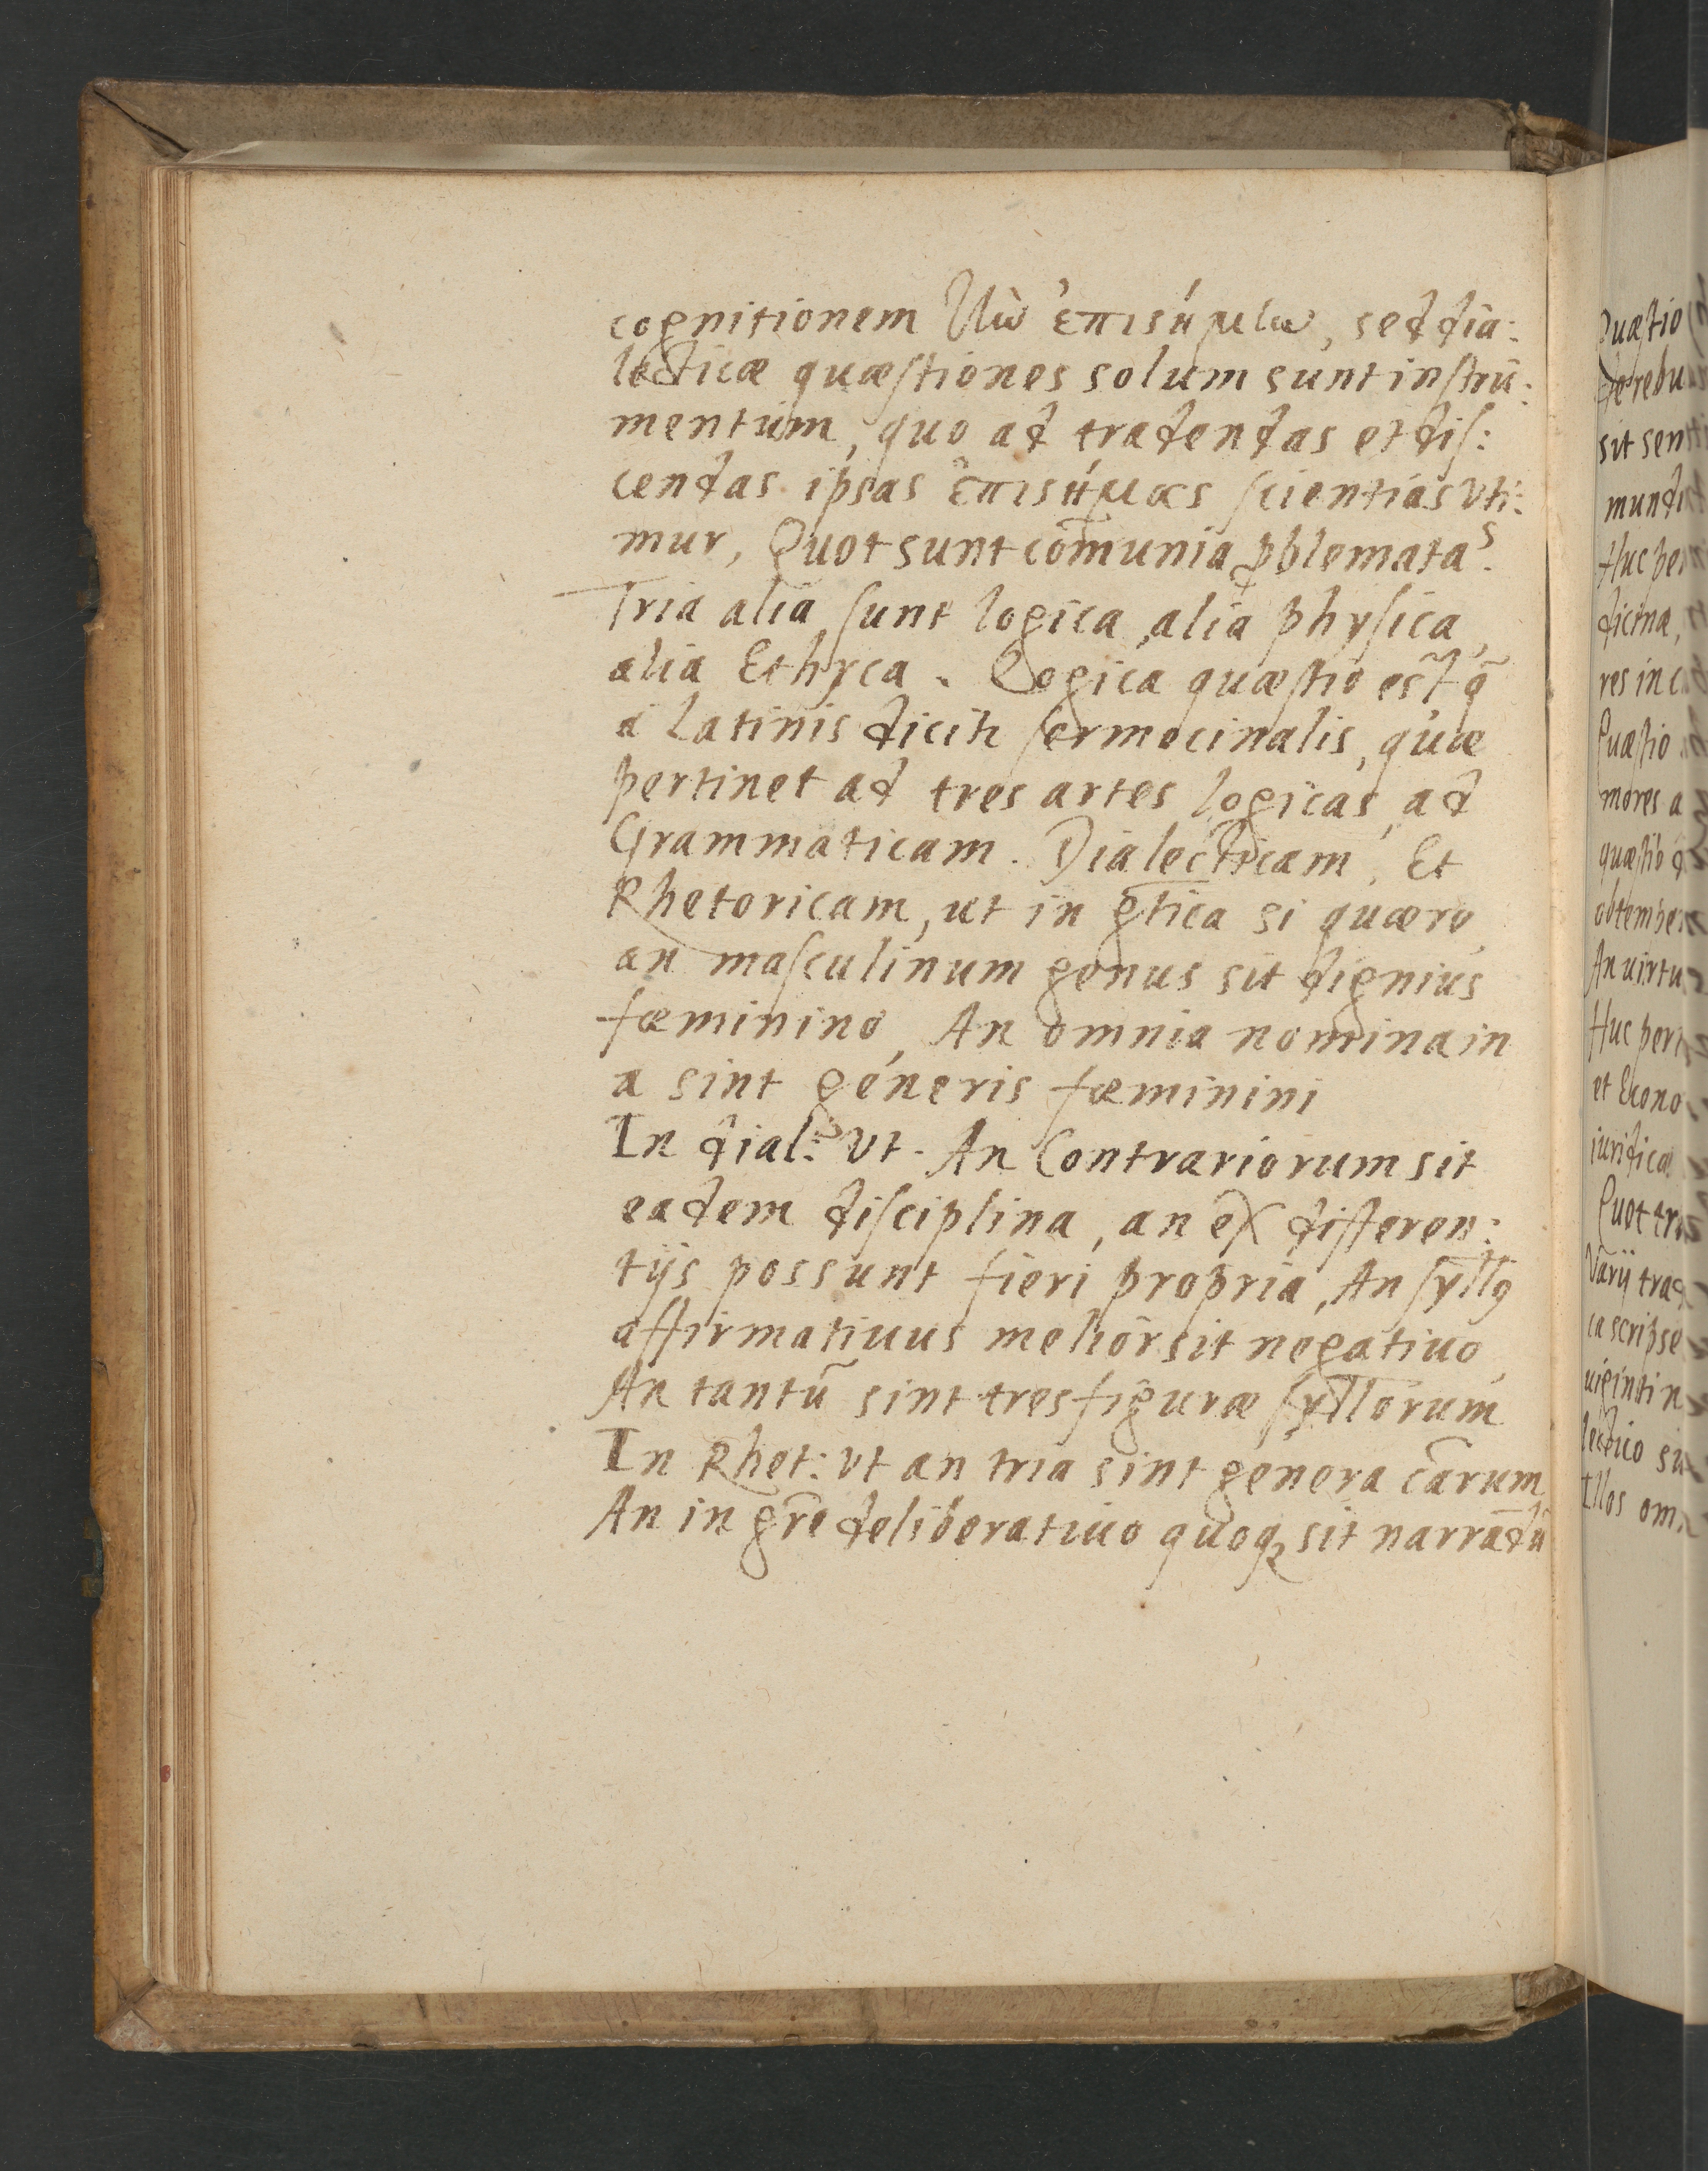 cognitionem τὴν ἐπιστήμην, sed dia:
lecticæ quæſtiones solum sunt inſtru:
mentum, quo ad tradendas et diſ:
cendas ipsas ἐπιστήμας ſcientias vti:
mur, Quot sunt com̄unia ꝓblemata?
Tria alia ſunt logica, alia phyſica,
alia Ethyca. Logica quæſtio est, q̃
a Latinis dicit̃ ſermocinalis, quæ
pertinet ad tres artes logicas, ad
Grammaticam. Dialecticam, Et
Rhetoricam, ut in g̃tica si quæro,
an maſculinum genus sit dignius
fœminino, An omnia nomina in
a sint generis fœminini
In dial: vt. An Contrariorum sit
eadem diſciplina, an ex differen:
tijs possunt fieri propria, An ſyll̃ꝯ
affirmatiuus melior sit negatiuo,
An tantũ sint tres figuræ ſyll̃orum
In Rhet: vt an tria sint genera cãrum
An in gr̃e deliberatiuo quoqꝫ sit narrãdũ
Quæſtio
de rebu
sit sen
mundi
Huc per
dicina,
res in c
Quæſtio
mores a
quæſtio q̃
obtemper
An uirtu
Huc pert
et Econo
iuridicæ
Quot tra
Varij trad
ca scripse
uiginti n
lectico su
Illos om